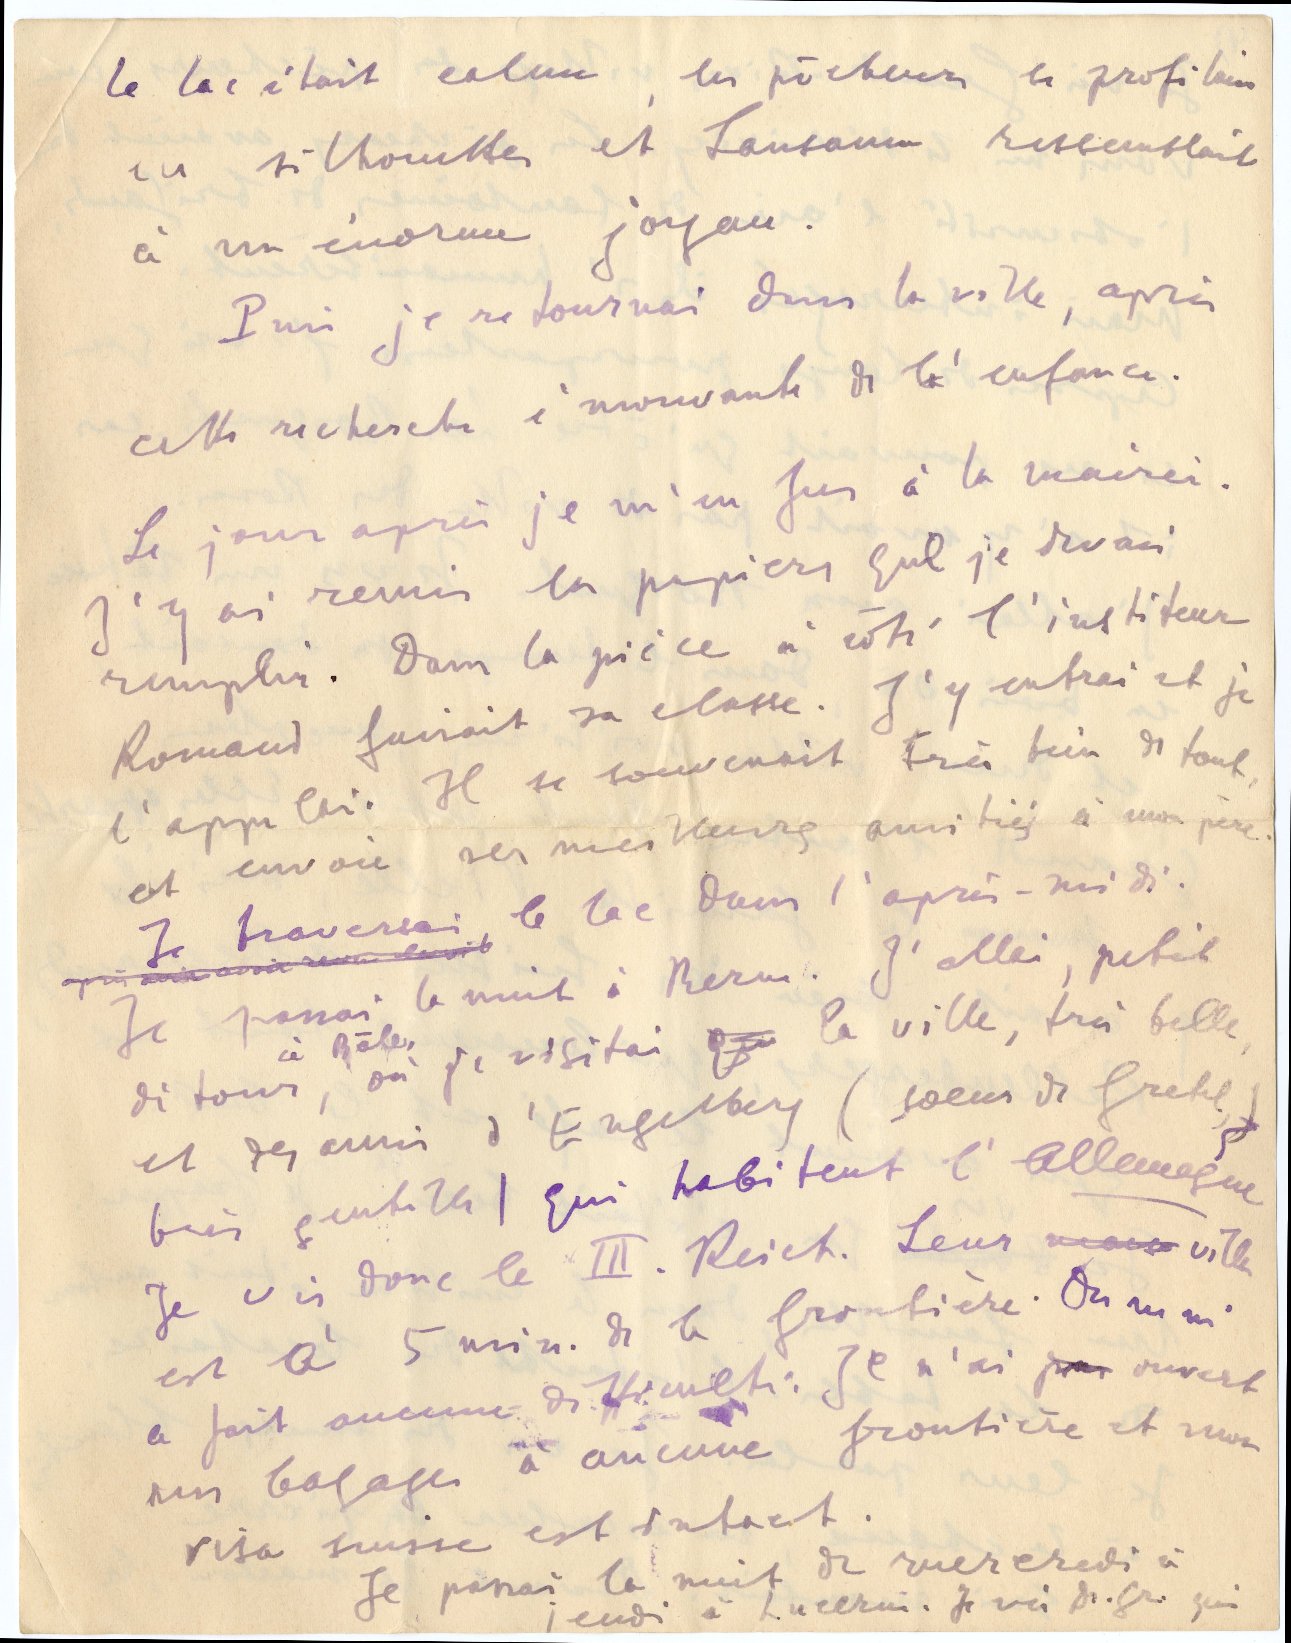 le lac était calme, les pêcheurs se profilaient
en silhouettes et Lausanne ressemblait
à un énorme joyau.
Puis je retournai dans la ville, après
cette recherche émouvante de l'enfance.
Le jour après je m'en fus à la mairei.
J'y ai remis les papiers que je devais
remplir. Dans la pièce à côté l'institeur
Romand finissait sa classe. J'y entrai et je
l'appelai. Il se souvenait très bien de tout,
et envoie ses meilleures amitiés à mon père.
Je traversai le lac dans l'après-midi.
Je passai la nuit à Berne. J'allai, petit
à Bâle,
détour, où je visitai la ville, très belle,
et des amis d'Engelberg (soeur de Gretel,)
bien gentille) qui habitent l'Allemagne
Je vis donc le III. Reich. Leur ville
est à 5 min. de la frontière. On ne m'
a fait aucune difficulté. Je n'ai ouvert
mes bagages à aucune frontière et mon
visa suisse est intact.
Je passai la nuit de mercredi à
jeudi à Lucerne. Je vis Dr. Gr. qui